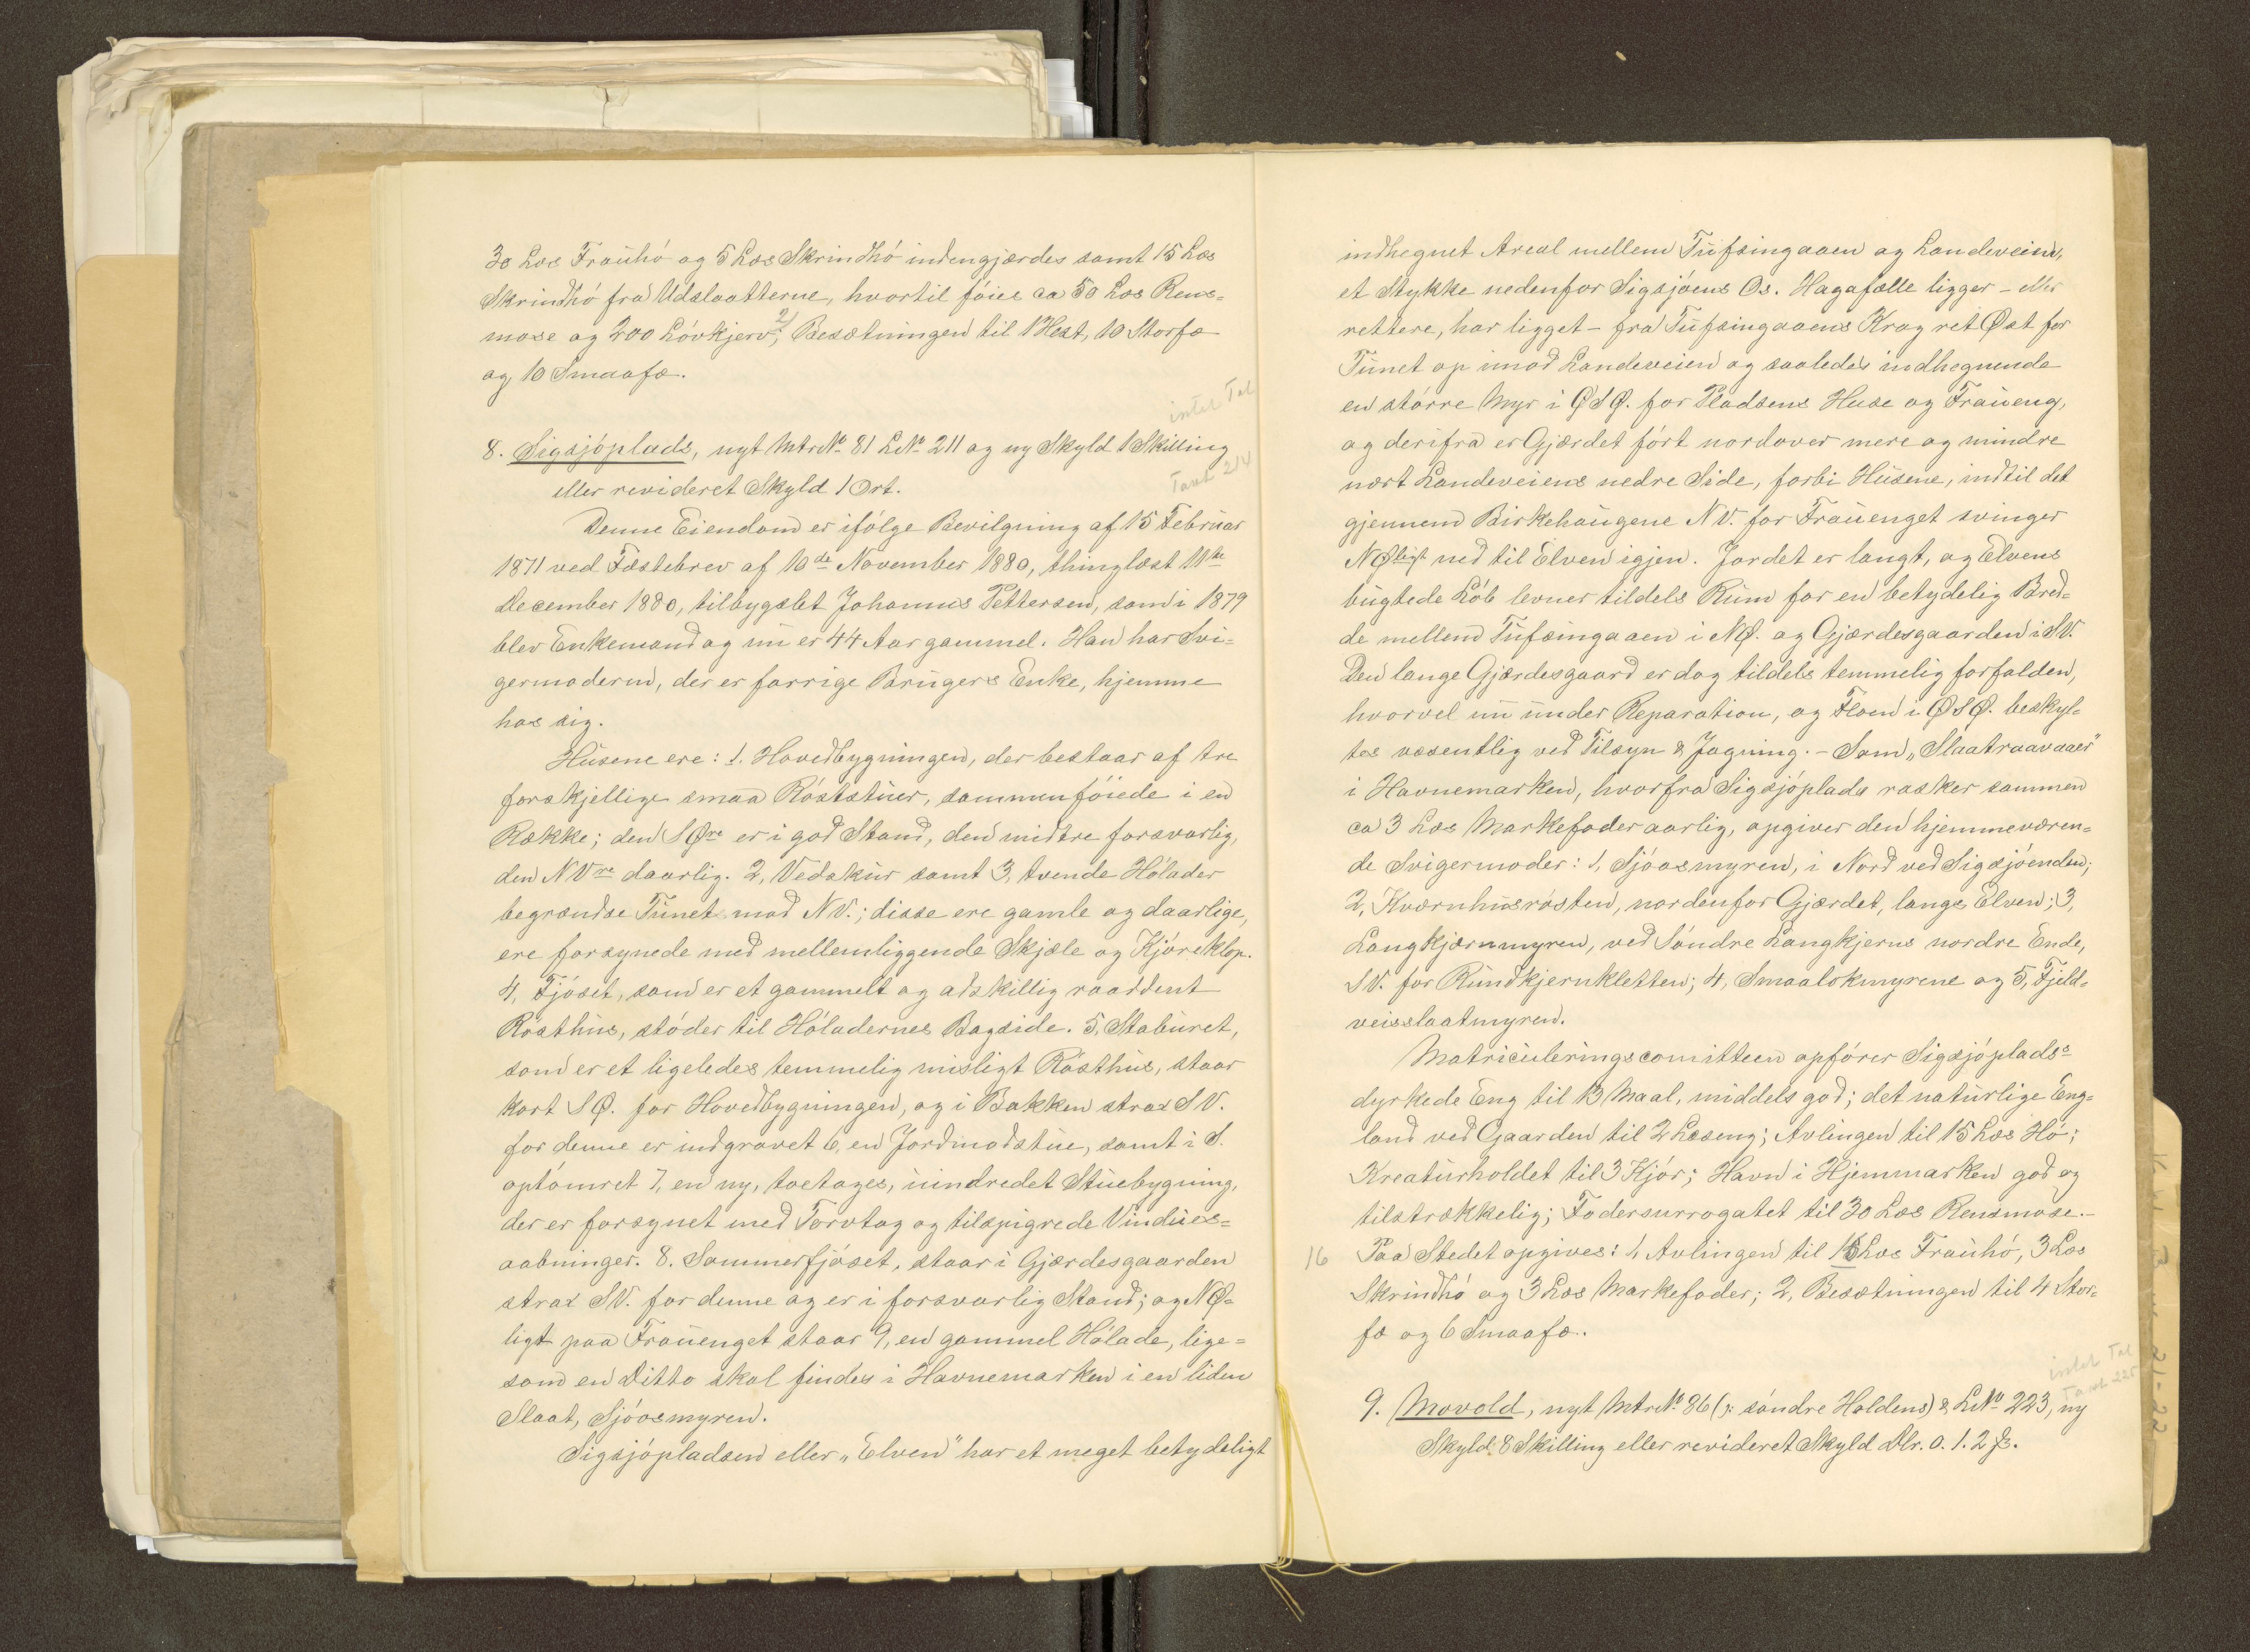 30 Læs Frauhö og 5 Læs Skrindhö indengjærdes samt 15 Læs
Skrindhö fra Udslaatterne, hvortil föies ca 50 Læs Rens-
mose og 200 Lövkjerv; 2/ Besætningen til 1 Hest, 10 Storfæ
og 10 Smaafæ.
intet Tal
8. Sigsjöplads, nyt Mtr№ 81 L№ 211 og ny Skyld 1 Skilling
Taxt 214
eller revideret Skyld 1 Ort.
Denne Eiendom er ifölge Bevilgning af 15 Februar
1871 ved Fæstebrev af 10de November 1880, thinglæst 11te
December 1880, tilbygslet Johannes Pettersen, som i 1879
blev Enkemand og nu er 44 Aar gammel. Han har Svi-
germoderen, der er forrige Brugers Enke, hjemme
hos sig.
Husene ere: 1. Hovedbygningen, der bestaar af tre
forskjellige smaa Röststuer, sammenföiede i en
Række; den SØre er i god Stand, den midtre forsvarlig,
den NVre daarlig. 2, Vedskur samt 3, tvende Hölader
begrændse Tunet mod NV.; disse ere gamle og daarlige,
ere forsynede med mellemliggende Skjæle og Kjöreklop.
4, Fjöset, som er et gammelt og adskillig raaddent
Rösthus, stöder til Höladernes Bagside. 5, Staburet,
som er et ligeledes temmelig misligt Rösthus, staar
kort SØ. for Hovedbygningen, og i Bakken strax SV.
for denne er indgravet 6, en Jordmodstue, samt i S.
optömret 7, en ny, toetages, uindredet Stuebygning,
der er forsynet med Torvtag og tilspigrede Vindues-
aabninger. 8. Sommerfjöset, staar i Gjærdesgaarden
strax SV. for denne og er i forsvarlig Stand; og NØ-
ligt paa Frauenget staar 9, en gammel Hölade, lige-
som en Ditto skal findes i Havnemarken i en liden
Slaat, Sjöosmyren.
Sigsjöpladsen eller "Elven" har et meget betydeligt
indhegnet Areal mellem Tufsingaaen og Landeveien,
et Stykke nedenfor Sigsjöens Os. Hagafælle ligger - eller
rettere, har ligget - fra Tufsingaaens Krog ret Øst for
Tunet op imod Landeveien og saaledes indhegnende
en större Myr i ØSØ. for Pladsens Huse og Fraueng,
og derifra er Gjærdet fört nordover mere og mindre
nært Landeveiens nedre Side, forbi Husene, indtil det
gjennem Birkehaugene NV. for Frauenget svinger
NØligt ned til Elven igjen. Jordet er langt, og Elvens
bugtede Löb levner tildels Rum for en betydelig Bred-
de mellem Tufsingaaen i NØ. og Gjærdesgaarden i SV.
Den lange Gjærdesgaard er dog tildels temmelig forfalden,
hvorvel nu under Reparation, og Floen i ØSØ. beskyt-
tes væsentlig ved Tilsyn & Jagning. - Som "Slaatraavaaer"
i Havnemarken, hvorfra Sigsjöplads rasker sammen
ca 3 Læs Markefoder aarlig, opgiver den hjemmeværen-
de Svigermoder: 1, Sjöosmyren, i Nord ved Sigsjöenden;
2, Kværnhusrösten, nordenfor Gjærdet, langs Elven; 3,
Langkjærnmyren, ved Söndre Langkjerns nordre Ende,
SV. for Rundkjernkletten; 4, Smaalokmyrene og 5, Fjeld-
veisslaatmyren.
Matriculeringscomitteen opförer Sigsjöplads's
dyrkede Eng til 13 Maal, middels god; det naturlige Eng-
land ved Gaarden til 2 Læseng; Avlingen til 15 Læs Hö;
Kreaturholdet til 3 Kjör; Havn i Hjemmarken god og
tilstrækkelig; Fodersurrogatet til 30 Læs Rensmose.-
16 Paa Stedet opgives: 1, Avlingen til 16 Læs Frauhö, 3 Læs
Skrindhö og 3 Læs Markefoder; 2, Besætningen til 4 Stor-
fæ og 6 Smaafæ.
intet Tal
Taxt 225
9. Movold, nyt Mtr№ 86 (ɔ: söndre Holdens) & L№ 223, ny
Skyld: 8 Skilling eller revideret Skyld Dlr. 0. 1. 2 ß.
21-22